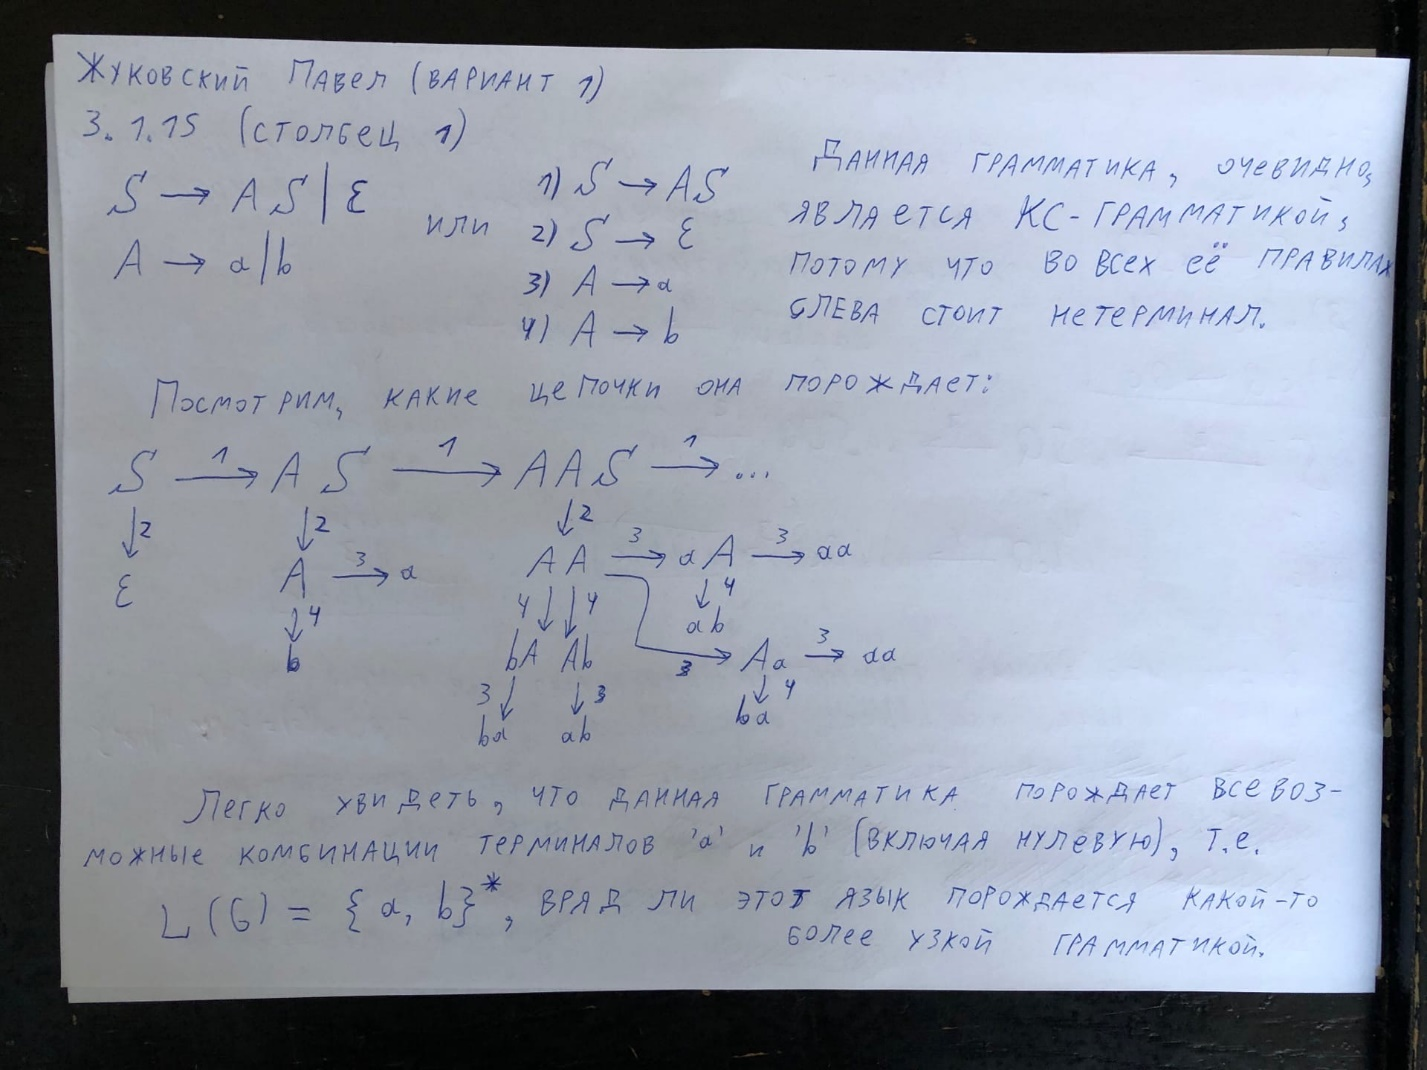 Жуковский Павел (вариант 1)
3.1.15 (столбец 1)
S → AS | ε
A → a | b
или
1) S → AS
2) S → ε
3) A → a
4) A → b
Данная грамматика, очевидно,
является КС-грамматикой,
потому что во всех её правилах
слева стоит нетерминал.
Посмотрим, какие цепочки она порождает:
S 1→ A S 1→ A A S 1→ ...
↓2 ↓2 ↓2
ε A 3→ a AA 3→ aA 3→ aa
↓4 4↓ ↓4 ↓4
b bA Ab ab 3→ Aa 3→ aa
3↓ ↓3 ↓4
ba ab ba
Легко увидеть, что данная грамматика порождает всевоз-
можные комбинации терминалов 'a' и 'b' (включая нулевую), т.е.
L(G) = {a, b}*, вряд ли этот язык порождается какой-то
более узкой грамматикой.